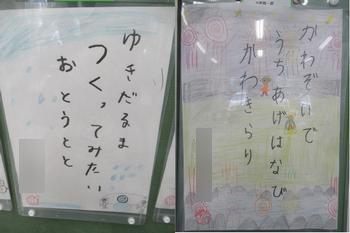 ゆきだるま
つくってみたい
おとうとと
かわぞいで
うちあげはなび
かわきらり